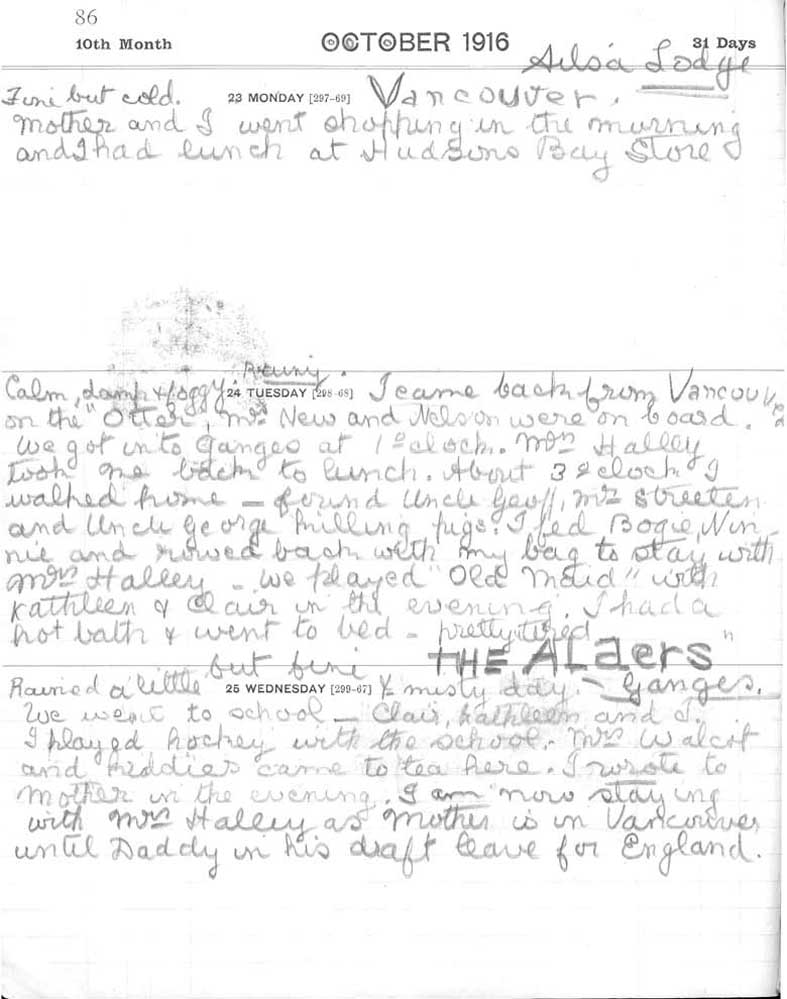 86
10th Month OCTOBER 1916 31 Days
Ailsa Lodge
Fine but cold. 23 MONDAY [297-69] Vancouver.
Mother and I went shopping in the morning
and I had lunch at Hudsons Bay Store
Rainy.
Calm, damp & foggy. 24 TUESDAY [298-68] I came back from Vancouver
on the "Otter", Mrs New and Nelson were on board.
We got into Ganges at 1 oclock. Mrs Halley
took me back to lunch. About 3 oclock I
walked home – found Uncle Geoff, Mr Streeten
and Uncle George killing pigs. I fed Bogie, Nin
nie and rowed back with my bag to stay with
Mrs Halley – We played "Old Maid" with
Kathleen & Clair in the evening. I had a
hot bath & went to bed – pretty tired
"THE ALders"
but fine
Rained a little 25 WEDNESDAY [299-67] & misty day. – Ganges.
We went to school – Clair, Kathleen and I.
I played hockey with the school. Mrs Walcot
and kiddies came to tea here. I wrote to
Mother in the evening. I am now staying
with Mrs Halley as Mother is in Vancouver
until Daddy in his draft leave for England.